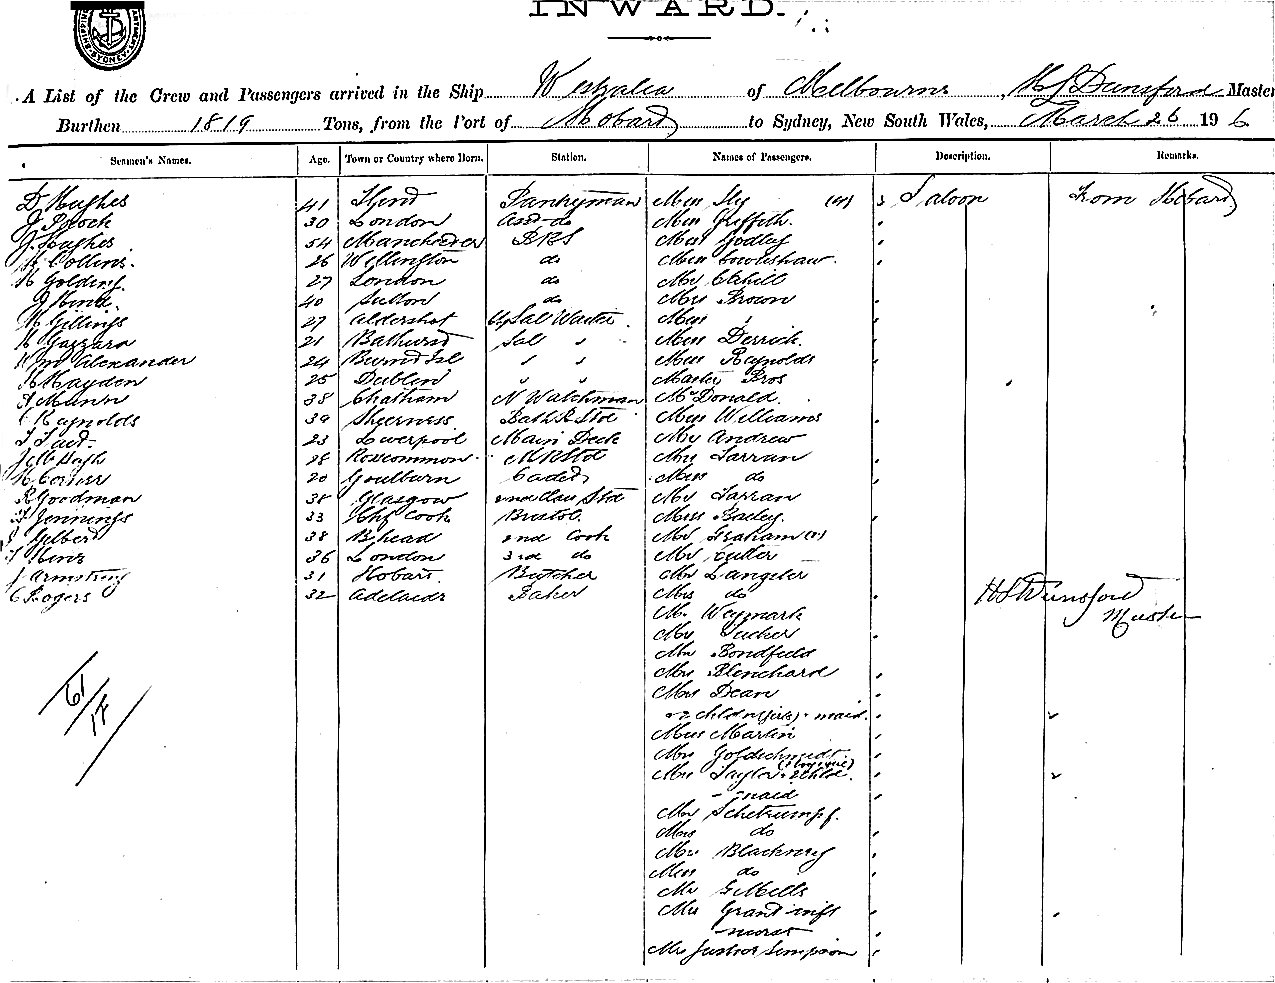 INWARD.
SYDNEY
A List of the Crew and Passengers arrived in the Ship Westralia of Melbourne, H S Dunsford Master
Burthen 1819 Tons, from the Port of Hobart to Sydney, New South Wales, March 26 1906
Seamen's Names. Age. Town or Country where Born. Station. Names of Passengers. Description. Remarks.
D Hughes 41 Pantryman Miss Sly (4) Saloon From Hobart
30 London Asst do Miss Griffith.
J Hughes 54 Manchester BRS Miss Godley
A Collins. 26 Wellington do Miss Cowlishaw.
H Golding. 27 London do Mr Cahill
40 Sutton do Mrs Brown
H Gillings 27 Aldershot Sal Waiter Miss "
H Gazzard 21 Bathurst Sal " Miss Derrick.
Wm Alexander 24 " " Miss Reynolds
H Hayden 25 Dublin " " Master Bros
A Munn 38 Chatham N Watchman McDonald.
C Reynolds 39 Sheerness. Bath R Std Miss Williams
23 Liverpool Main Deck Mr Andrew
28 Roscommon Mrs Tarran
H 20 Goulburn Cadet Miss do
R Goodman 38 Glasgow 2nd Class Std Mr Tarran
F Jennings 33 Chf Cook Bristol. Miss Bailey.
Gilbert 38 B'head 2nd Cook Mr Graham
36 London 3rd do Mr Cutler
J Armstrong 31 Hobart. Butcher Mr Langeler
C Rogers 32 Adelaide Baker Mrs do
H S Dunsford
Master
Mr Weymark
Mr Tucker
Mr Bondfield
Mrs Blenchard
Mrs Dean
2 chldn (girls) + maid.
Miss Martin
Mrs Goldschmidt.
Mrs Taylor + 2 chld.
maid
Mr Schetrumpf.
Mrs do
Mr Blackney
Miss do
Mr G Mills
Mrs Grant inft
nurse
Mrs Simpson
61/17